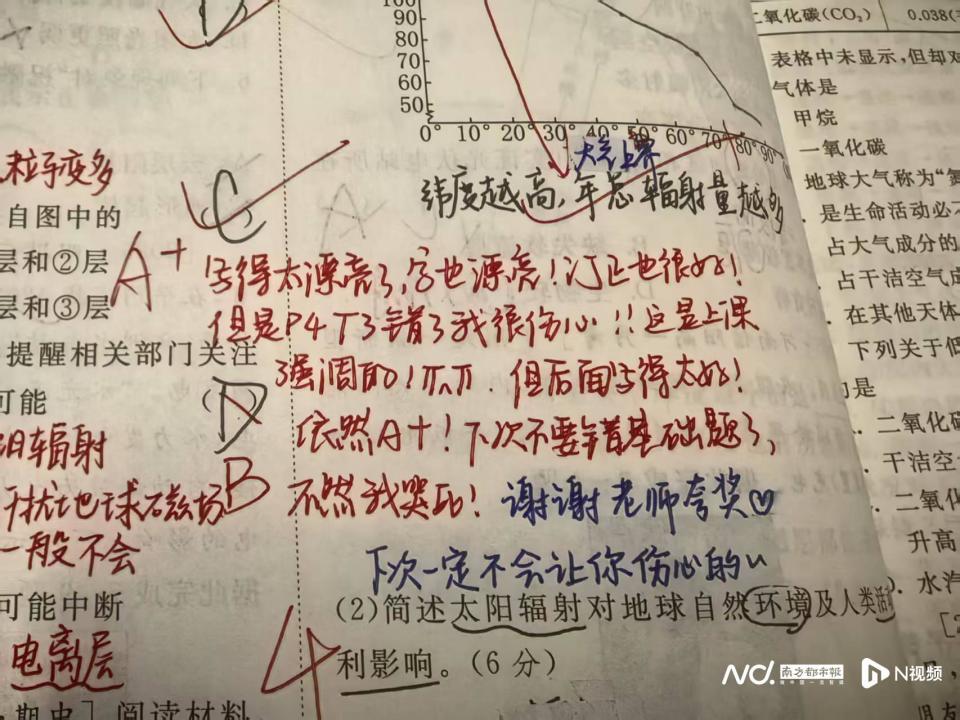 100
90
80
70
60
50
0° 10° 20° 30° 40° 50° 60° 70° 80° 90°
大气上界
纬度越高,年总辐射量越多
粒子变多
自图中的
层和②层
层和③层
提醒相关部门关注
可能
阳辐射
干扰地球磁场
一般不会
可能中断
电离层
期中] 阅读材料
C
A+
写得太漂亮了,字也漂亮!订正也很好!
但是P4T3错了我很伤心!!这是上课
强调的!π.π. 但后面写得太好!
依然A+!下次不要错基础题了,
不然我哭死! 谢谢老师夸奖♡
下次一定不会让你伤心的
D
B
(2)简述太阳辐射对地球自然环境及人类活
利影响。(6分)
4
二氧化碳(CO₂) 0.038(
表格中未显示,但却对
气体是
甲烷
一氧化碳
地球大气称为“氮
是生命活动必不
占大气成分的
占干洁空气成
在其他天体
下列关于低
的是
二氧化碳
干洁空
二氧化
升高
水汽
N! 南方都市报
N视频